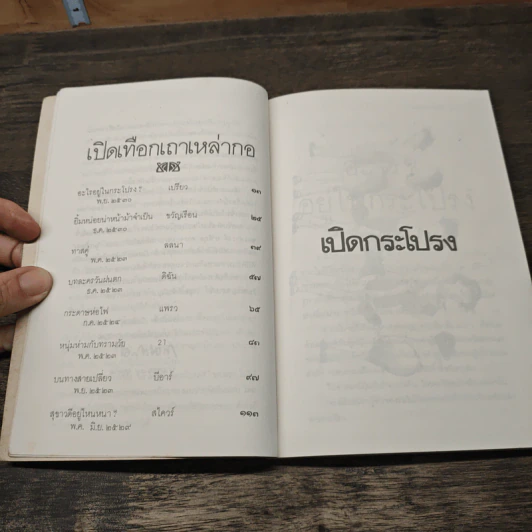 เปิดเทือกเถาเหล่ากอ
อะไรอยู่ในกระโปรง ? เปรียว ๑๓
พ.ย. ๒๕๓๐
ยิ้มหน่อยน่าหน้าม้าจำเป็น ขวัญเรือน ๒๕
ธ.ค. ๒๕๓๐
ทาสคู่ ลลนา ๓๙
พ.ค. ๒๕๒๓
บุหละครวันฝนตก ดิฉัน ๕๗
ธ.ค. ๒๕๒๓
กระดาษห่อไฟ แพรว ๖๕
ก.ค. ๒๕๒๔
หนุ่มห่ามกับทรามวัย 21 ๘๓
พ.ค. ๒๕๒๓
บนทางสายเปลี่ยว บีอาร์ ๙๗
พ.ย. ๒๕๒๓
สุขาวดีอยู่ไหนหนา ? สโควร์ ๑๑๓
พ.ค. มิ.ย. ๒๕๒๙
เปิดกระโปรง